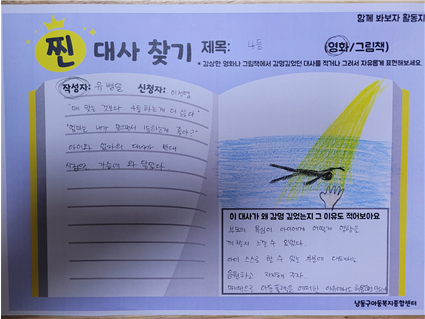 함께 봐보자 활동지
찐 대사 찾기 제목: 4등 (영화/그림책)
* 감상한 영화나 그림책에서 감명깊었던 대사를 적거나 그려서 자유롭게 표현해보세요.
작성자: 신청자:
"매 맞는 것보다 4등하는게 더 싫다"
"엄마는 내가 맞으면서 1등하는게 좋아?"
아이와 엄마의 대사가 반대
가슴에 와 닿았다
이 대사가 왜 감명 깊었는지 그 이유도 적어보아요
부모의 욕심이 아이에게 어떻게 영향을
느낄 수 있었다.
아이 스스로 할 수 있는
응원하고 지지해 주자
남동구아동복지종합센터